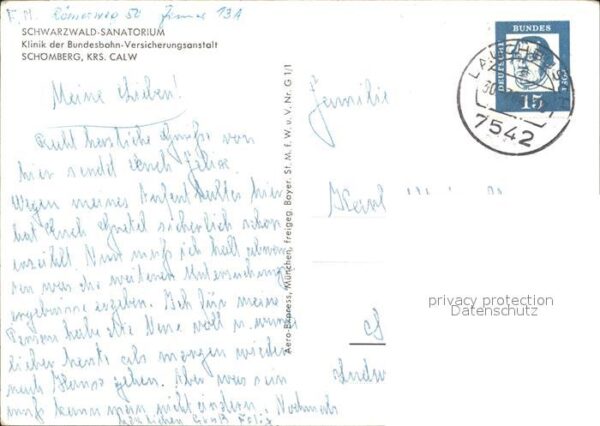 F. M. Römerweg 50 Zimmer 13A
SCHWARZWALD-SANATORIUM
Klinik der Bundesbahn-Versicherungsanstalt
SCHOMBERG, KRS. CALW
Meine Lieben!
Recht herzliche Grüße von
hier sendet Euch Felix.
Wegen meines Aufenthaltes hier
hat Euch sicherlich schon
erzählt. Nun muß ich halt abwar
ten was die weiteren Untersuchungs
ergebnisse ergeben. Ich für meine
Person habe die Nase voll u. würde
lieber heute als morgen wieder
nach Hause gehen. Aber was sein
muß kann man nicht ändern. Nochmals
herzlichen Gruß Felix
Aero-Express, München, freigeg. Bayer. St. M. f. W. u. V. Nr. G 1/1
DEUTSCHE BUNDESPOST
15
7542
Familie
Karl
privacy protection
Datenschutz